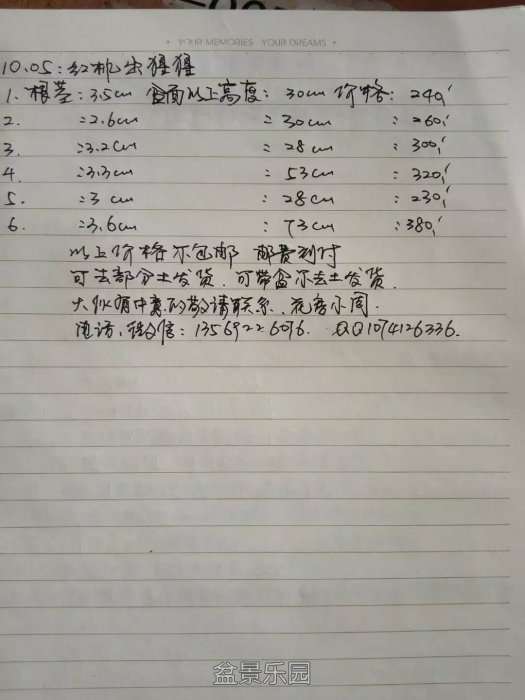 YOUR MEMORIES YOUR DREAMS
10.05:红机出猩猩
1. 根茎:3.5cm 盆面以上高度: 30cm 价格: 240,
2. :2.6cm : 30cm : 260,
3. :3.2cm : 28cm : 300,
4. :3.3cm : 53cm : 320,
5. :3cm : 28cm : 230,
6. :3.6cm : 73cm :380,
以上价格不包邮 邮费到付
可去部分土发货.可带盆不去土发货.
大伙有中意的敬请联系.花房小周.
电话,微信:13569226096. QQ1074126336.
盆景乐园